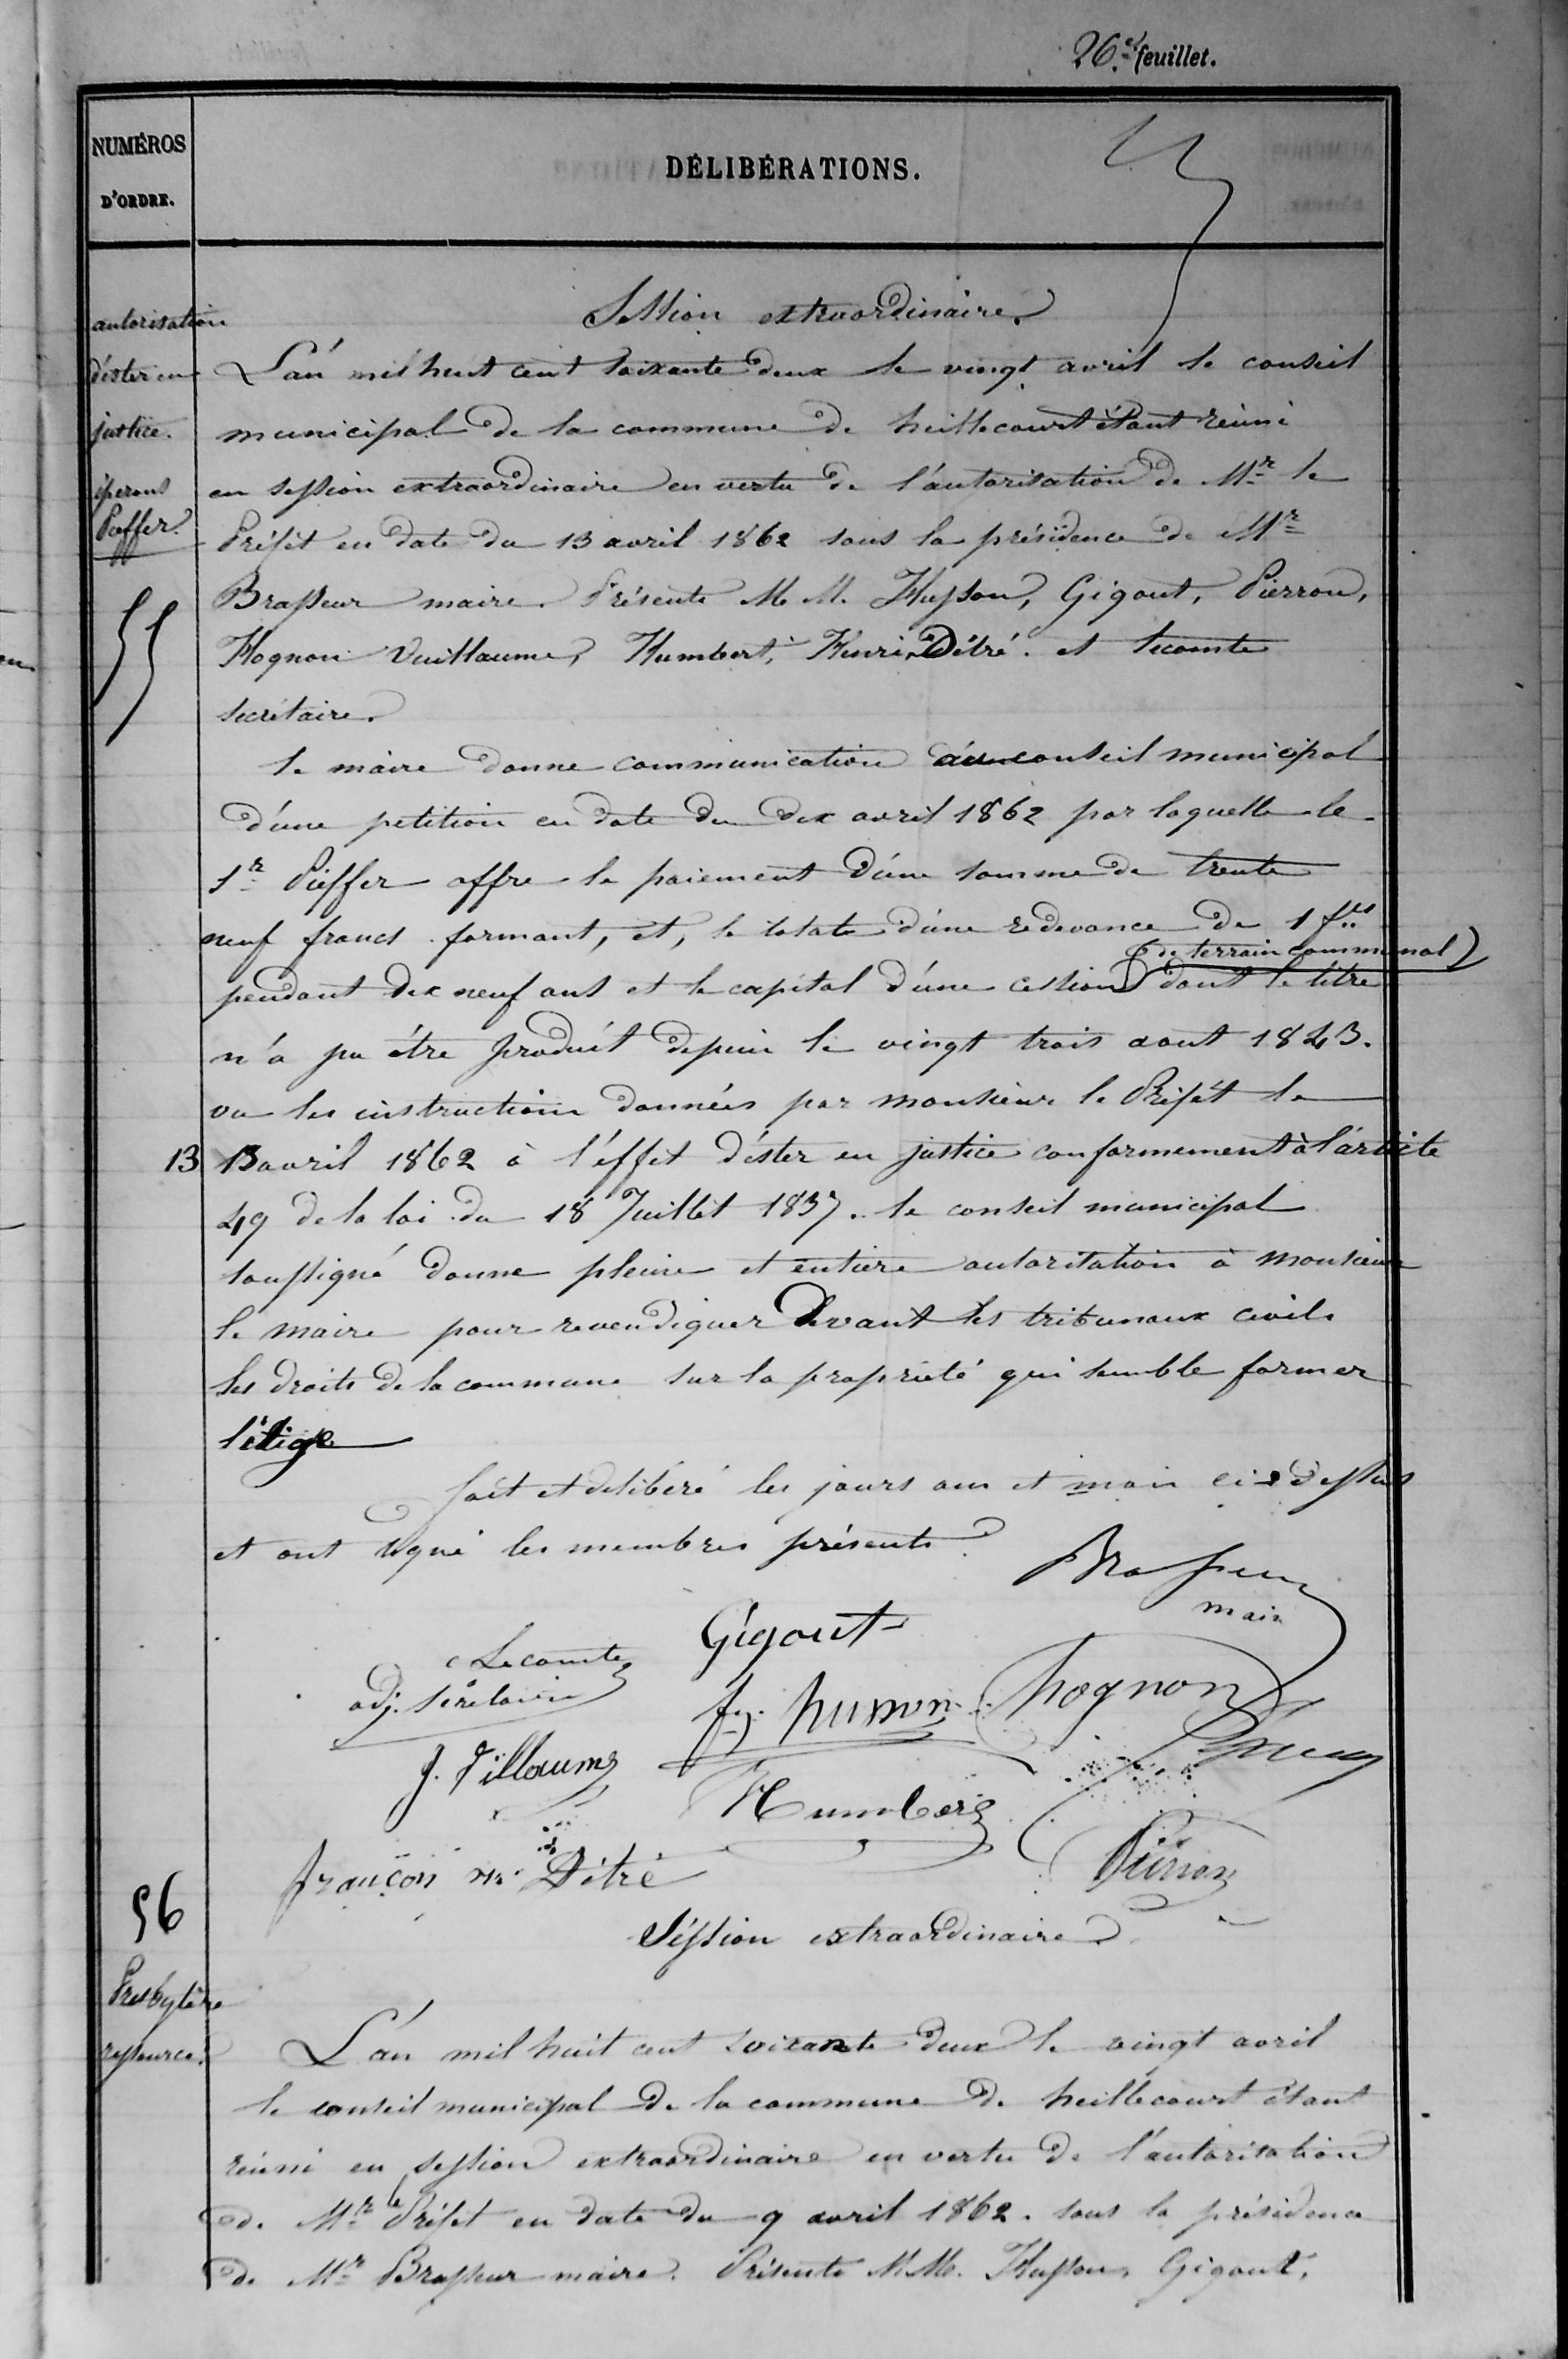 26.e feuillet.
NUMÉROS
D'ORDRE.
DÉLIBÉRATIONS.
autorisation
d'ester en
justice.
55
Session extraordinaire.
L'an mil huit cent soixante deux le vingt avril le conseil
municipal de la commune de heillecourt étant réuni
en session extraordinaire en vertu de l'autorisation de Mr le
Préfet en date du 13 avril 1862 sous la présidence de Mr
Brasseur maire. Présents M. M. Husson, Gigout, Pierron,
Hognon Vuillaume, Humbert, Henri, Détré. et Lecomte
secrétaire.
le maire donne communication au conseil municipal
d'une petition en date du dix avril 1862 par laquelle le
Sr Pieffer offre le paiement d'une somme de trente
neuf francs formant, et, le totale d'une redevance de 1 f
(de terrain communal)
pendant dix neuf ans et le capital d'une cession dont le titre
n'a pu être produit depuis le vingt trois aout 1843.
vu les instructions données par monsieur le Préfet le
13 13 avril 1862 à l'éffet d'ester en justice conformement à l'article
49 de la loi du 18 Juillet 1837. le conseil municipal
soussigné donne pleine et entière autorisation à monsieur
le maire pour revendiquer devant les tribunaux civils
les droits de la commune sur la propriété qui semble former
litige
fait et délibéré les jours an et mois ci dessus
et ont signé les membres présents.
Brasseur
maire
Gigout
Lecomte
adj. secretaire
husson
hognon
J. Villaume
Humbert
françois Détré
Pierron
56
Session extraordinaire
Presbytère
ressources
L'an mil huit cent soixante deux le vingt avril
le conseil municipal de la commune de heillecourt étant
réuni en session extraordinaire en vertu de l'autorisation
de Mr le Préfet en date du 9 avril 1862. sous la présidence
de Mr Brasseur maire. Présents M.M. Husson, Gigout,